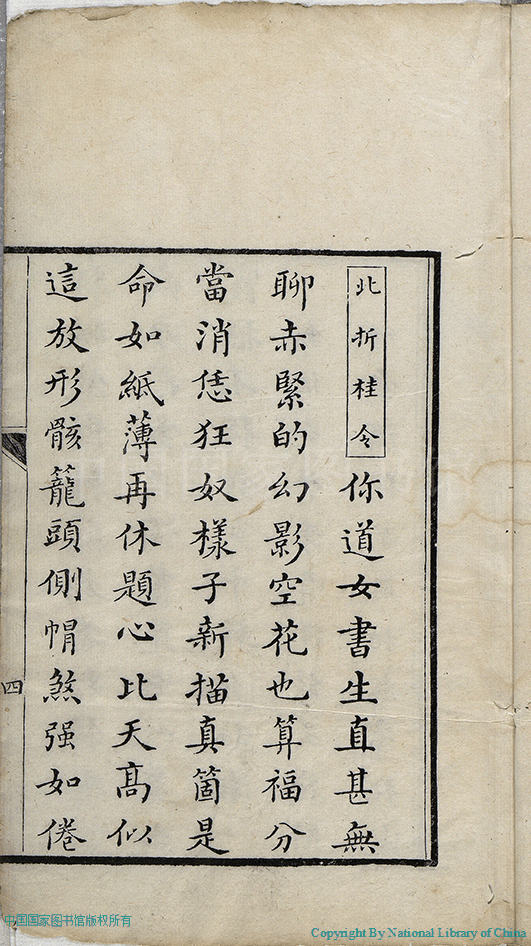 北折桂令 你道女書生直甚無
聊赤緊的幻影空花也算福分
當消恁狂奴樣子新描真箇是
命如紙薄再休題心比天高似
這放形骸籠頭側帽煞强如倦
四
中国国家图书馆版权所有
Copyright By National Library of China